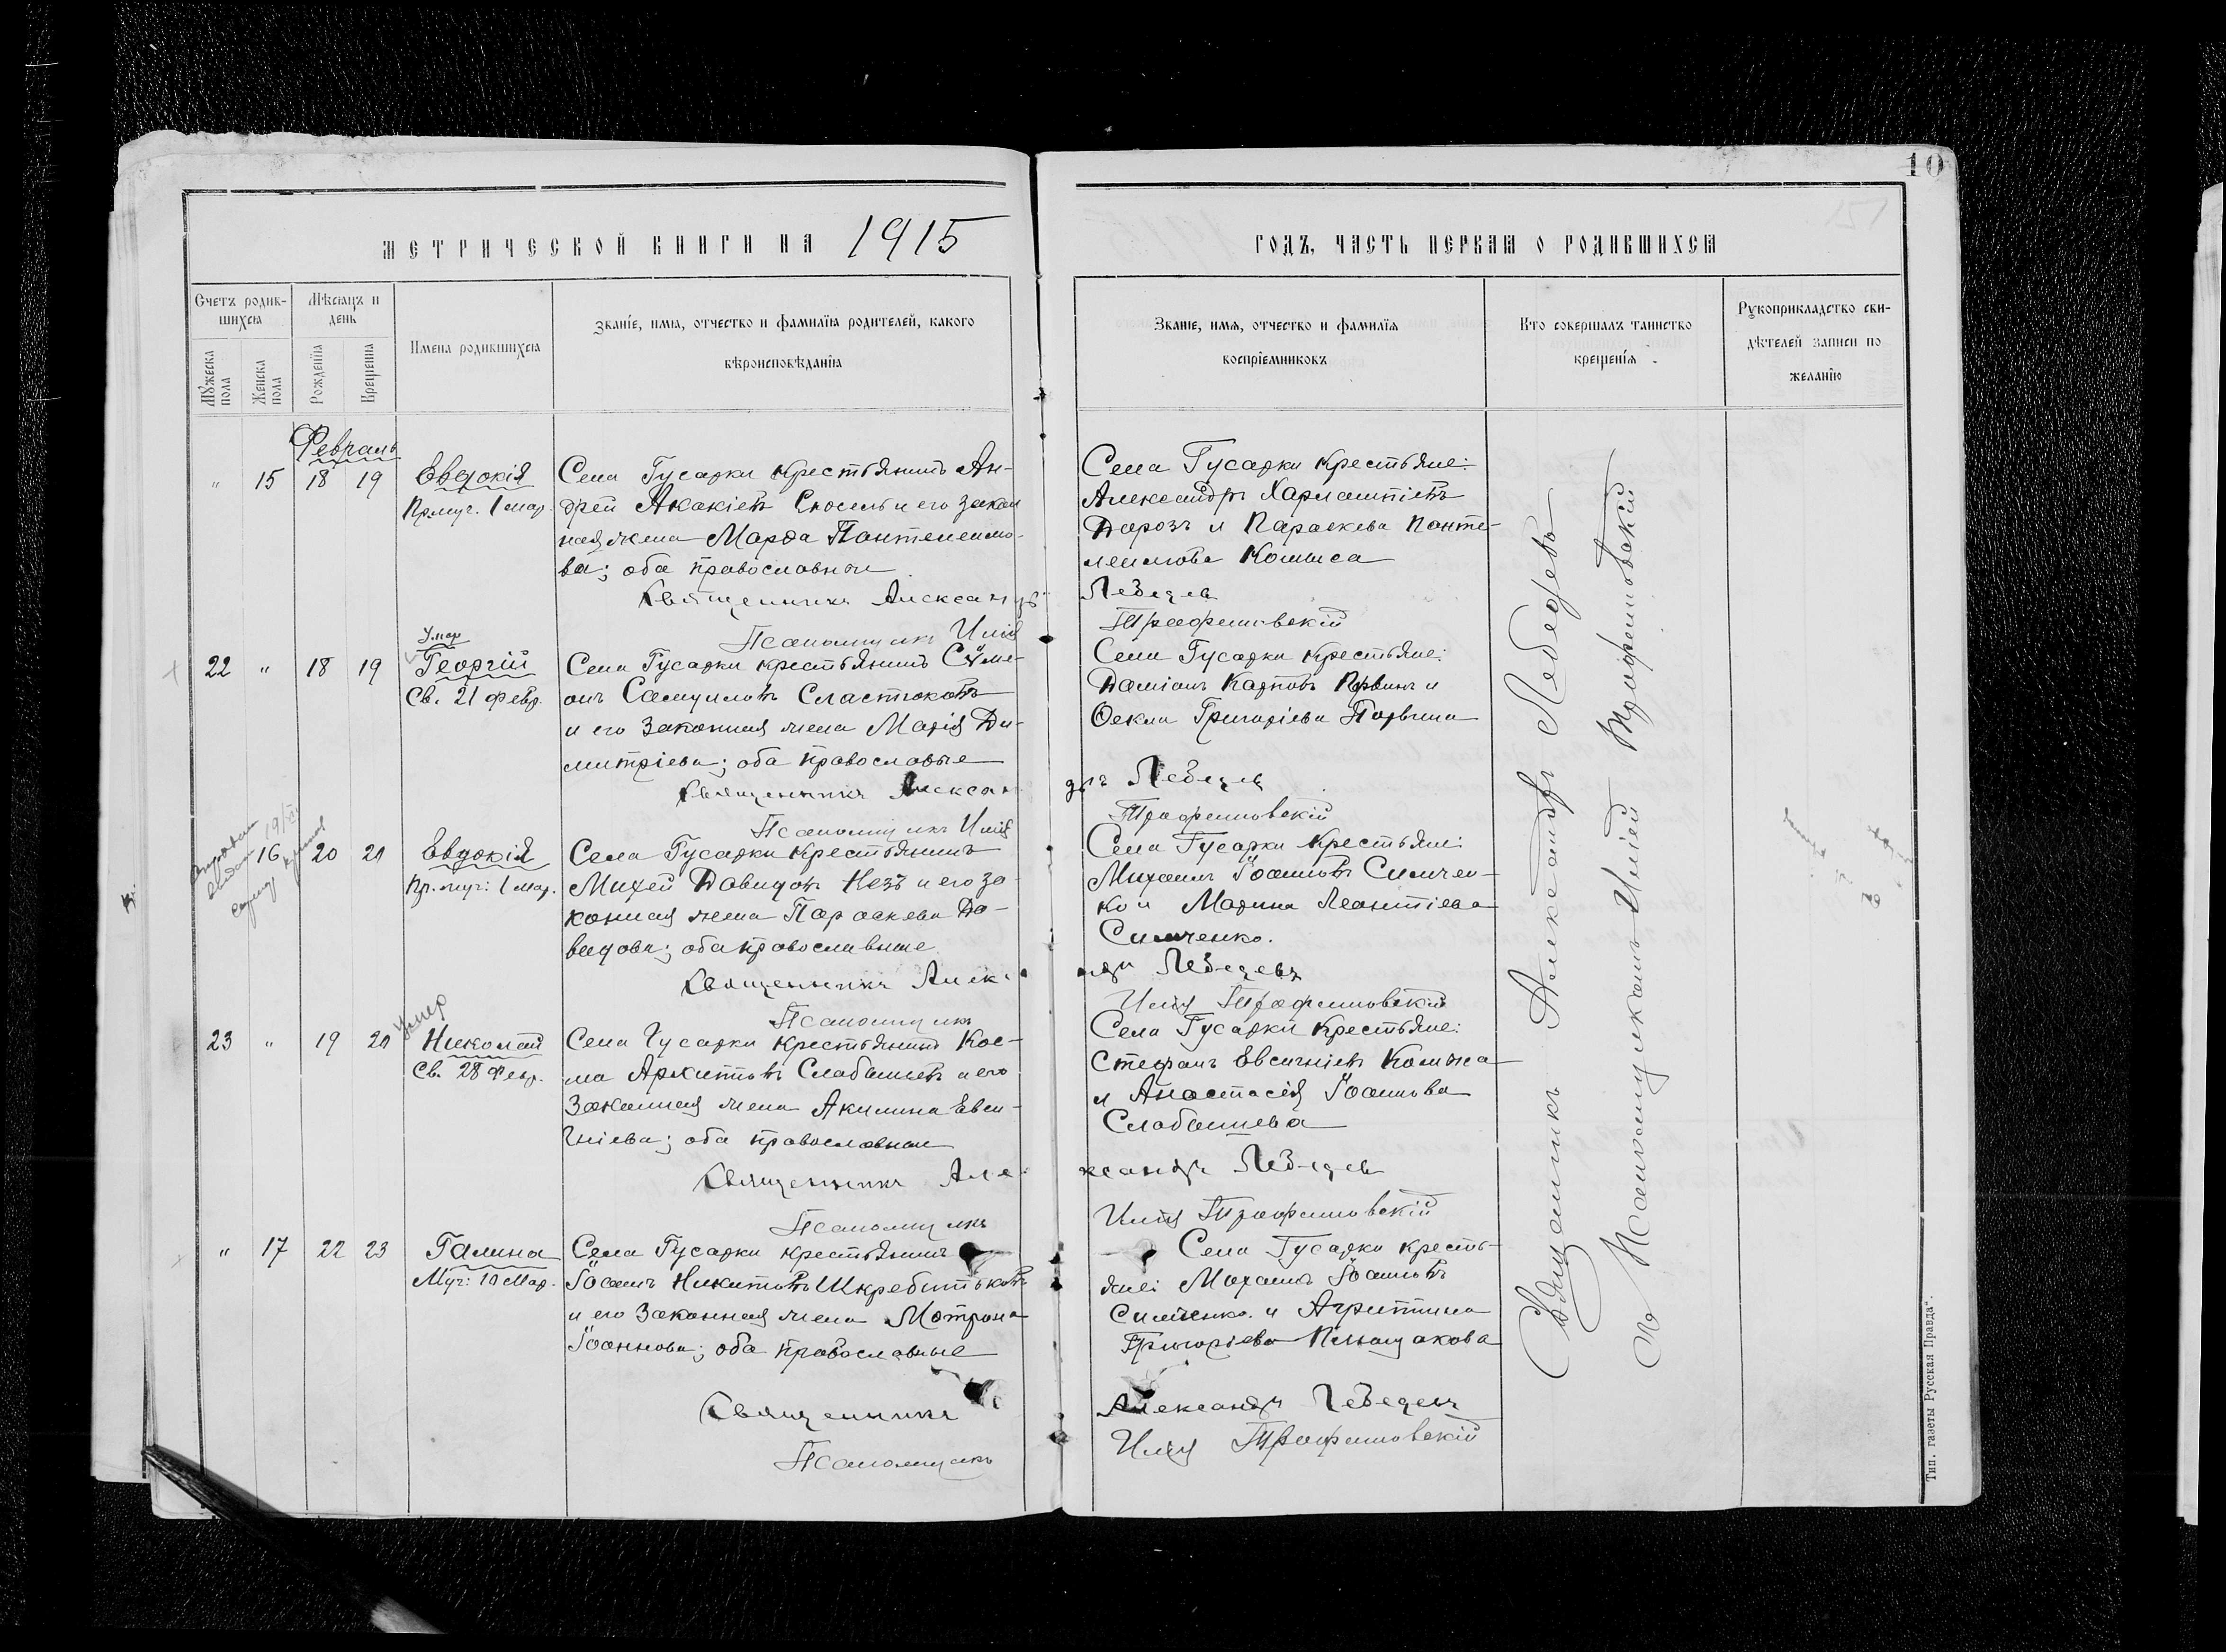 10
МЕТРИЧЕСКОЙ КНИГИ НА 1915
ГОДЪ, ЧАСТЬ ПЕРВАЯ О РОДИВШИХСЯ
Счетъ родив-
шихся
Мѣсяцъ и
день
Мужеска
пола
Женска
пола
Рожденія
Крещенія
Имена родившихся
Званіе, имя, отчество и фамилія родителей, какого
вѣроисповѣданія
Званіе, имя, отчество и фамилія
воспріемниковъ
Кто совершалъ таинство
крещенія
Рукоприкладство сви-
дѣтелей записи по
желанію
Февраль
" 15 18 19 Евдокія
Пр.муч. 1 мар.
Села Гусарки крестьянинъ Ан-
дрей Акакіевъ и его закон
ная жена Марѳа Пантелеимо-
ва; оба православные
Священникъ Александръ
Псаломщикъ Илія
Села Гусарки крестьяне:
Александръ Харлампіевъ
Дорозъ и Параскева Панте-
леимова
Лебедевъ
Трофимовскій
Умер
22 " 18 19 Георгій
Св. 21 февр.
Села Гусарки крестьянинъ Сѵме-
онъ Самуиловъ Сластюковъ
и его законная жена Марія Ди-
митріева; оба православные
Священникъ Алексан
Псаломщикъ Илія
Села Гусарки крестьяне:
Даміанъ Карповъ и
Ѳекла Григоріева
дръ Лебедевъ
Трофимовскій
16 20 21 Евдокія
Пр.муч: 1 мар.
Села Гусарки крестьянинъ
Михей Давидовъ Незъ и его за-
конная жена Параскева Да-
видова; оба православные
Священникъ Алек
Псаломщикъ
Села Гусарки крестьяне:
Михаилъ Іоанновъ Симчен-
ко и Марина Леонтіева
Симченко.
Лебедевъ
Илія Трофимовскій
Умер
23 " 19 20 Николай
Св. 28 февр.
Села Гусарки крестьянинъ Кос-
ма Архиповъ и его
законная жена Акилина Евси-
гніева; оба православные
Священникъ Але
Псаломщикъ
Села Гусарки крестьяне:
Стефанъ Евсигніевъ
и Анастасія Іоаннова
ксандръ Лебедевъ
Илія Трофимовскій
" 17 22 23 Галина
Муч: 10 мар.
Села Гусарки крестьянинъ
Іоаннъ Никитовъ Шкребитьковъ
и его законная жена Мотрона
Іоаннова; оба православные
Священникъ
Псаломщикъ
Села Гусарки кресть-
яне: Михаилъ Іоанновъ
Симченко и Агриппина
Григоріева
Александръ Лебедевъ
Илія Трофимовскій
Священникъ Александръ Лебедевъ
Псаломщикомъ Иліей Трофимовскій
Тип. газеты „Русская Правда“.